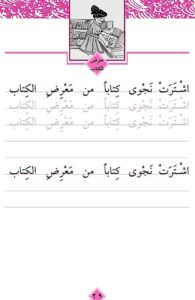 معرض
الكتاب
اشْتَرَتْ نَجْوى كِتاباً من مَعْرِضِ الكِتاب
اشْتَرَتْ نَجْوى كِتاباً من مَعْرِضِ الكِتاب
اشْتَرَتْ نَجْوى كِتاباً من مَعْرِضِ الكِتاب
اشْتَرَتْ نَجْوى كِتاباً من مَعْرِضِ الكِتاب
اشْتَرَتْ نَجْوى كِتاباً من مَعْرِضِ الكِتاب
٢٩